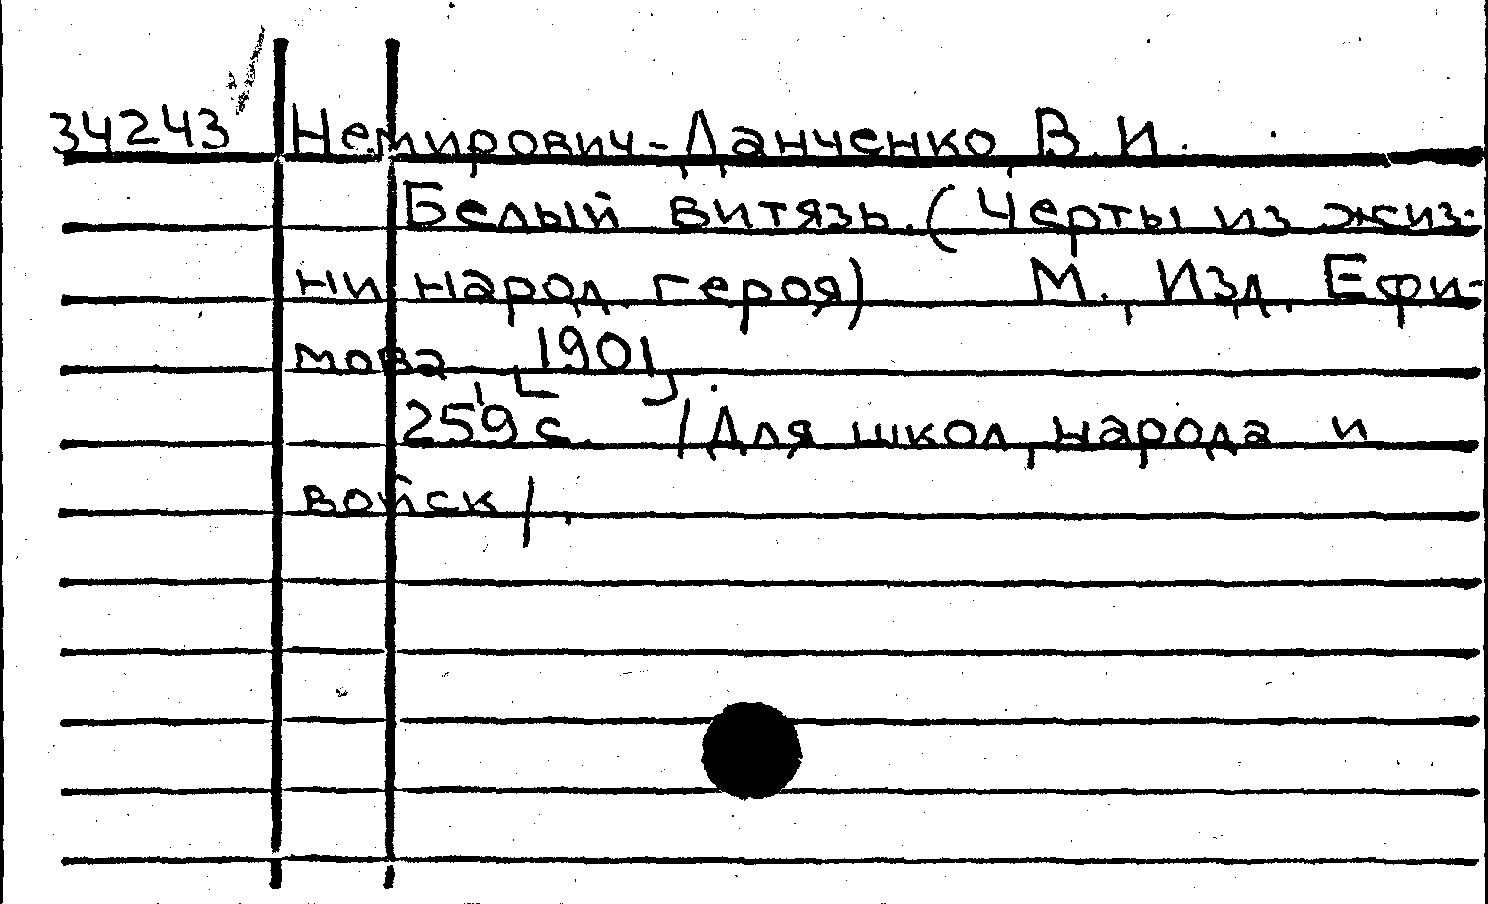 34243 Немирович-Данченко В. И.
Белый витязь. (Черты из жиз-
ни народ. героя) М., Изд. Ефи-
мова, [1901].
259 с. /Для школ, народа и
войск/.